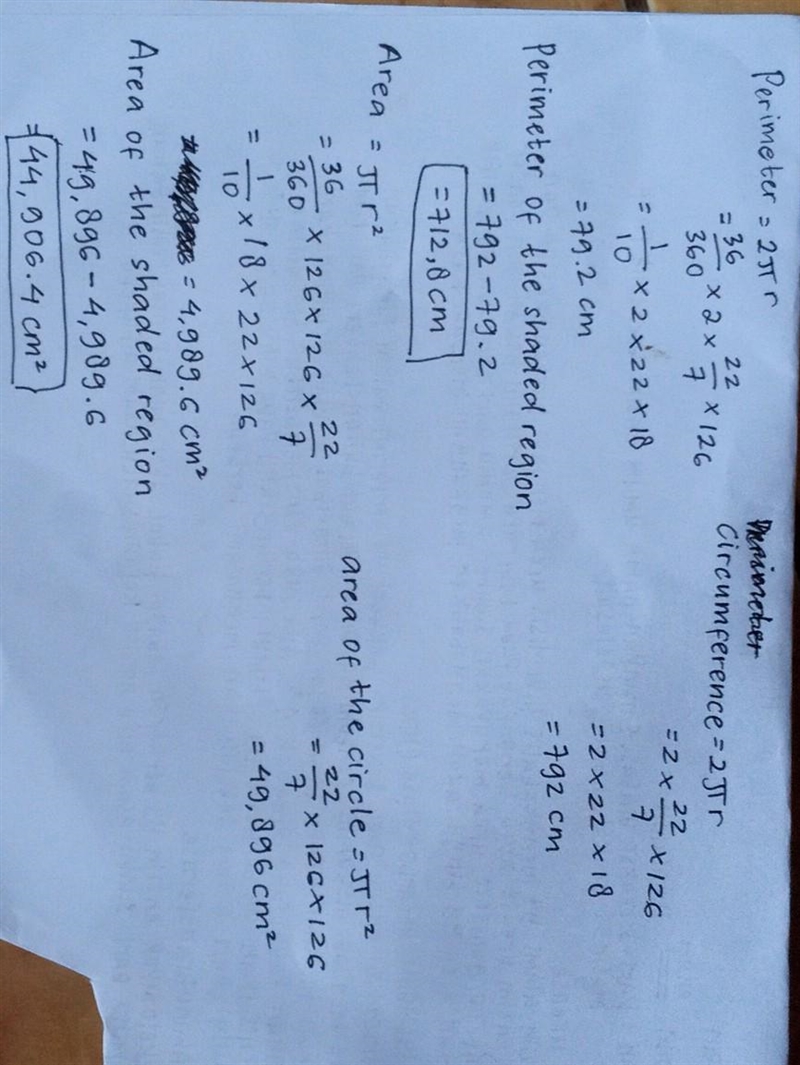 Perimeter = 2πr
= 36/360 × 2 × 22/7 × 126
= 1/10 × 2 × 22 × 18
= 79.2 cm
Perimeter of the shaded region
= 792 - 79.2
= 712,8 cm
Area = πr²
= 36/360 × 126 × 126 × 22/7
= 1/10 × 18 × 22 × 126
= 4,989.6 cm²
Area of the shaded region
= 49,896 - 4,989.6
= 44,906.4 cm²
Perimeter
Circumference = 2πr
= 2 × 22/7 × 126
= 2 × 22 × 18
= 792 cm
area of the circle = πr²
= 22/7 × 126 × 126
= 49,896 cm²